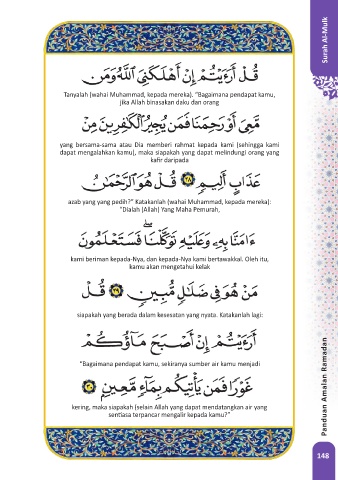 Surah Al-Mulk
قُلْ أَرَءَيْتُمْ إِنْ أَهْلَكَنِىَ ٱللَّهُ وَمَن
Tanyalah (wahai Muhammad, kepada mereka). "Bagaimana pendapat kamu,
jika Allah binasakan daku dan orang
مَّعِىَ أَوْ رَحِمَنَا فَمَن يُجِيرُ ٱلْكَٰفِرِينَ مِنْ
yang bersama-sama atau Dia memberi rahmat kepada kami (sehingga kami
dapat mengalahkan kamu), maka siapakah yang dapat melindungi orang yang
kafir daripada
عَذَابٍ أَلِيمٍ ٢٨ قُلْ هُوَ ٱلرَّحْمَٰنُ
azab yang yang pedih?" Katakanlah (wahai Muhammad, kepada mereka):
"Dialah (Allah) Yang Maha Pemurah,
ءَامَنَّا بِهِۦ وَعَلَيْهِ تَوَكَّلْنَا ۖ فَسَتَعْلَمُونَ
kami beriman kepada-Nya, dan kepada-Nya kami bertawakkal. Oleh itu,
kamu akan mengetahui kelak
مَنْ هُوَ فِى ضَلَٰلٍ مُّبِينٍ ٢٩ قُلْ
siapakah yang berada dalam kesesatan yang nyata. Katakanlah lagi:
أَرَءَيْتُمْ إِنْ أَصْبَحَ مَآؤُكُمْ
"Bagaimana pendapat kamu, sekiranya sumber air kamu menjadi
غَوْرًا فَمَن يَأْتِيكُم بِمَآءٍ مَّعِينٍۭ ٣٠
kering, maka siapakah (selain Allah yang dapat mendatangkan air yang
sentiasa terpancar mengalir kepada kamu?"
Panduan Amalan Ramadan
148